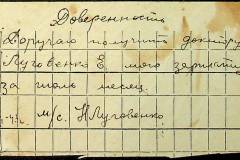 Доверенность
Поручаю получить доктору
Луговенко Е. мою зарплату
за июль месяц
м/с. НЛуговенко